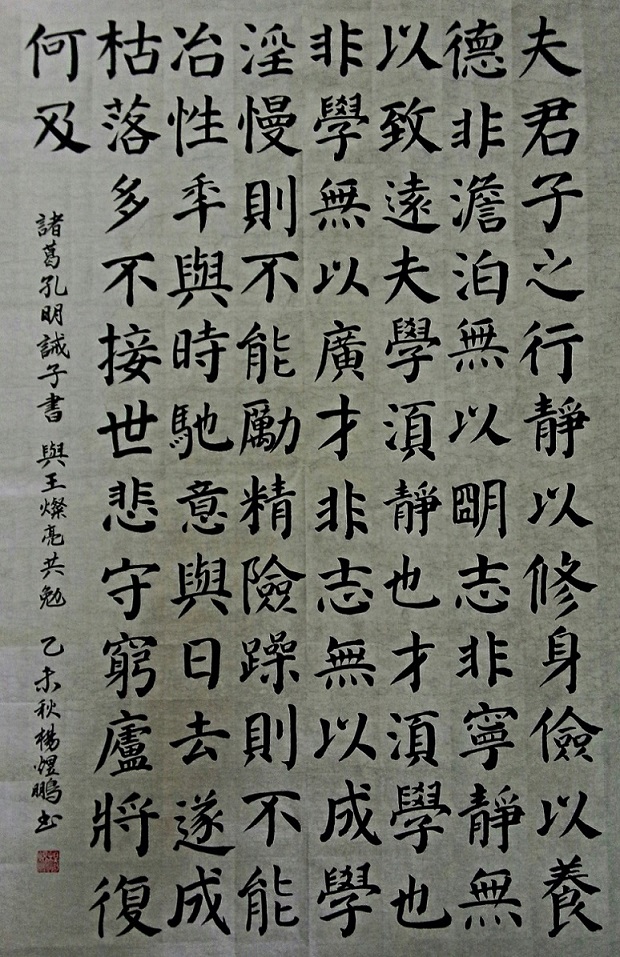 夫君子之行靜以修身儉以養
德非澹泊無以明志非寧靜無
以致遠夫學湏靜也才湏學也
非學無以廣才非志無以成學
淫慢則不能勵精險躁則不能
冶性年與時馳意與日去遂成
枯落多不接世悲守窮廬將復
何及
諸葛孔明誡子書 與王燦亮共勉 乙未秋楊煜鵬书